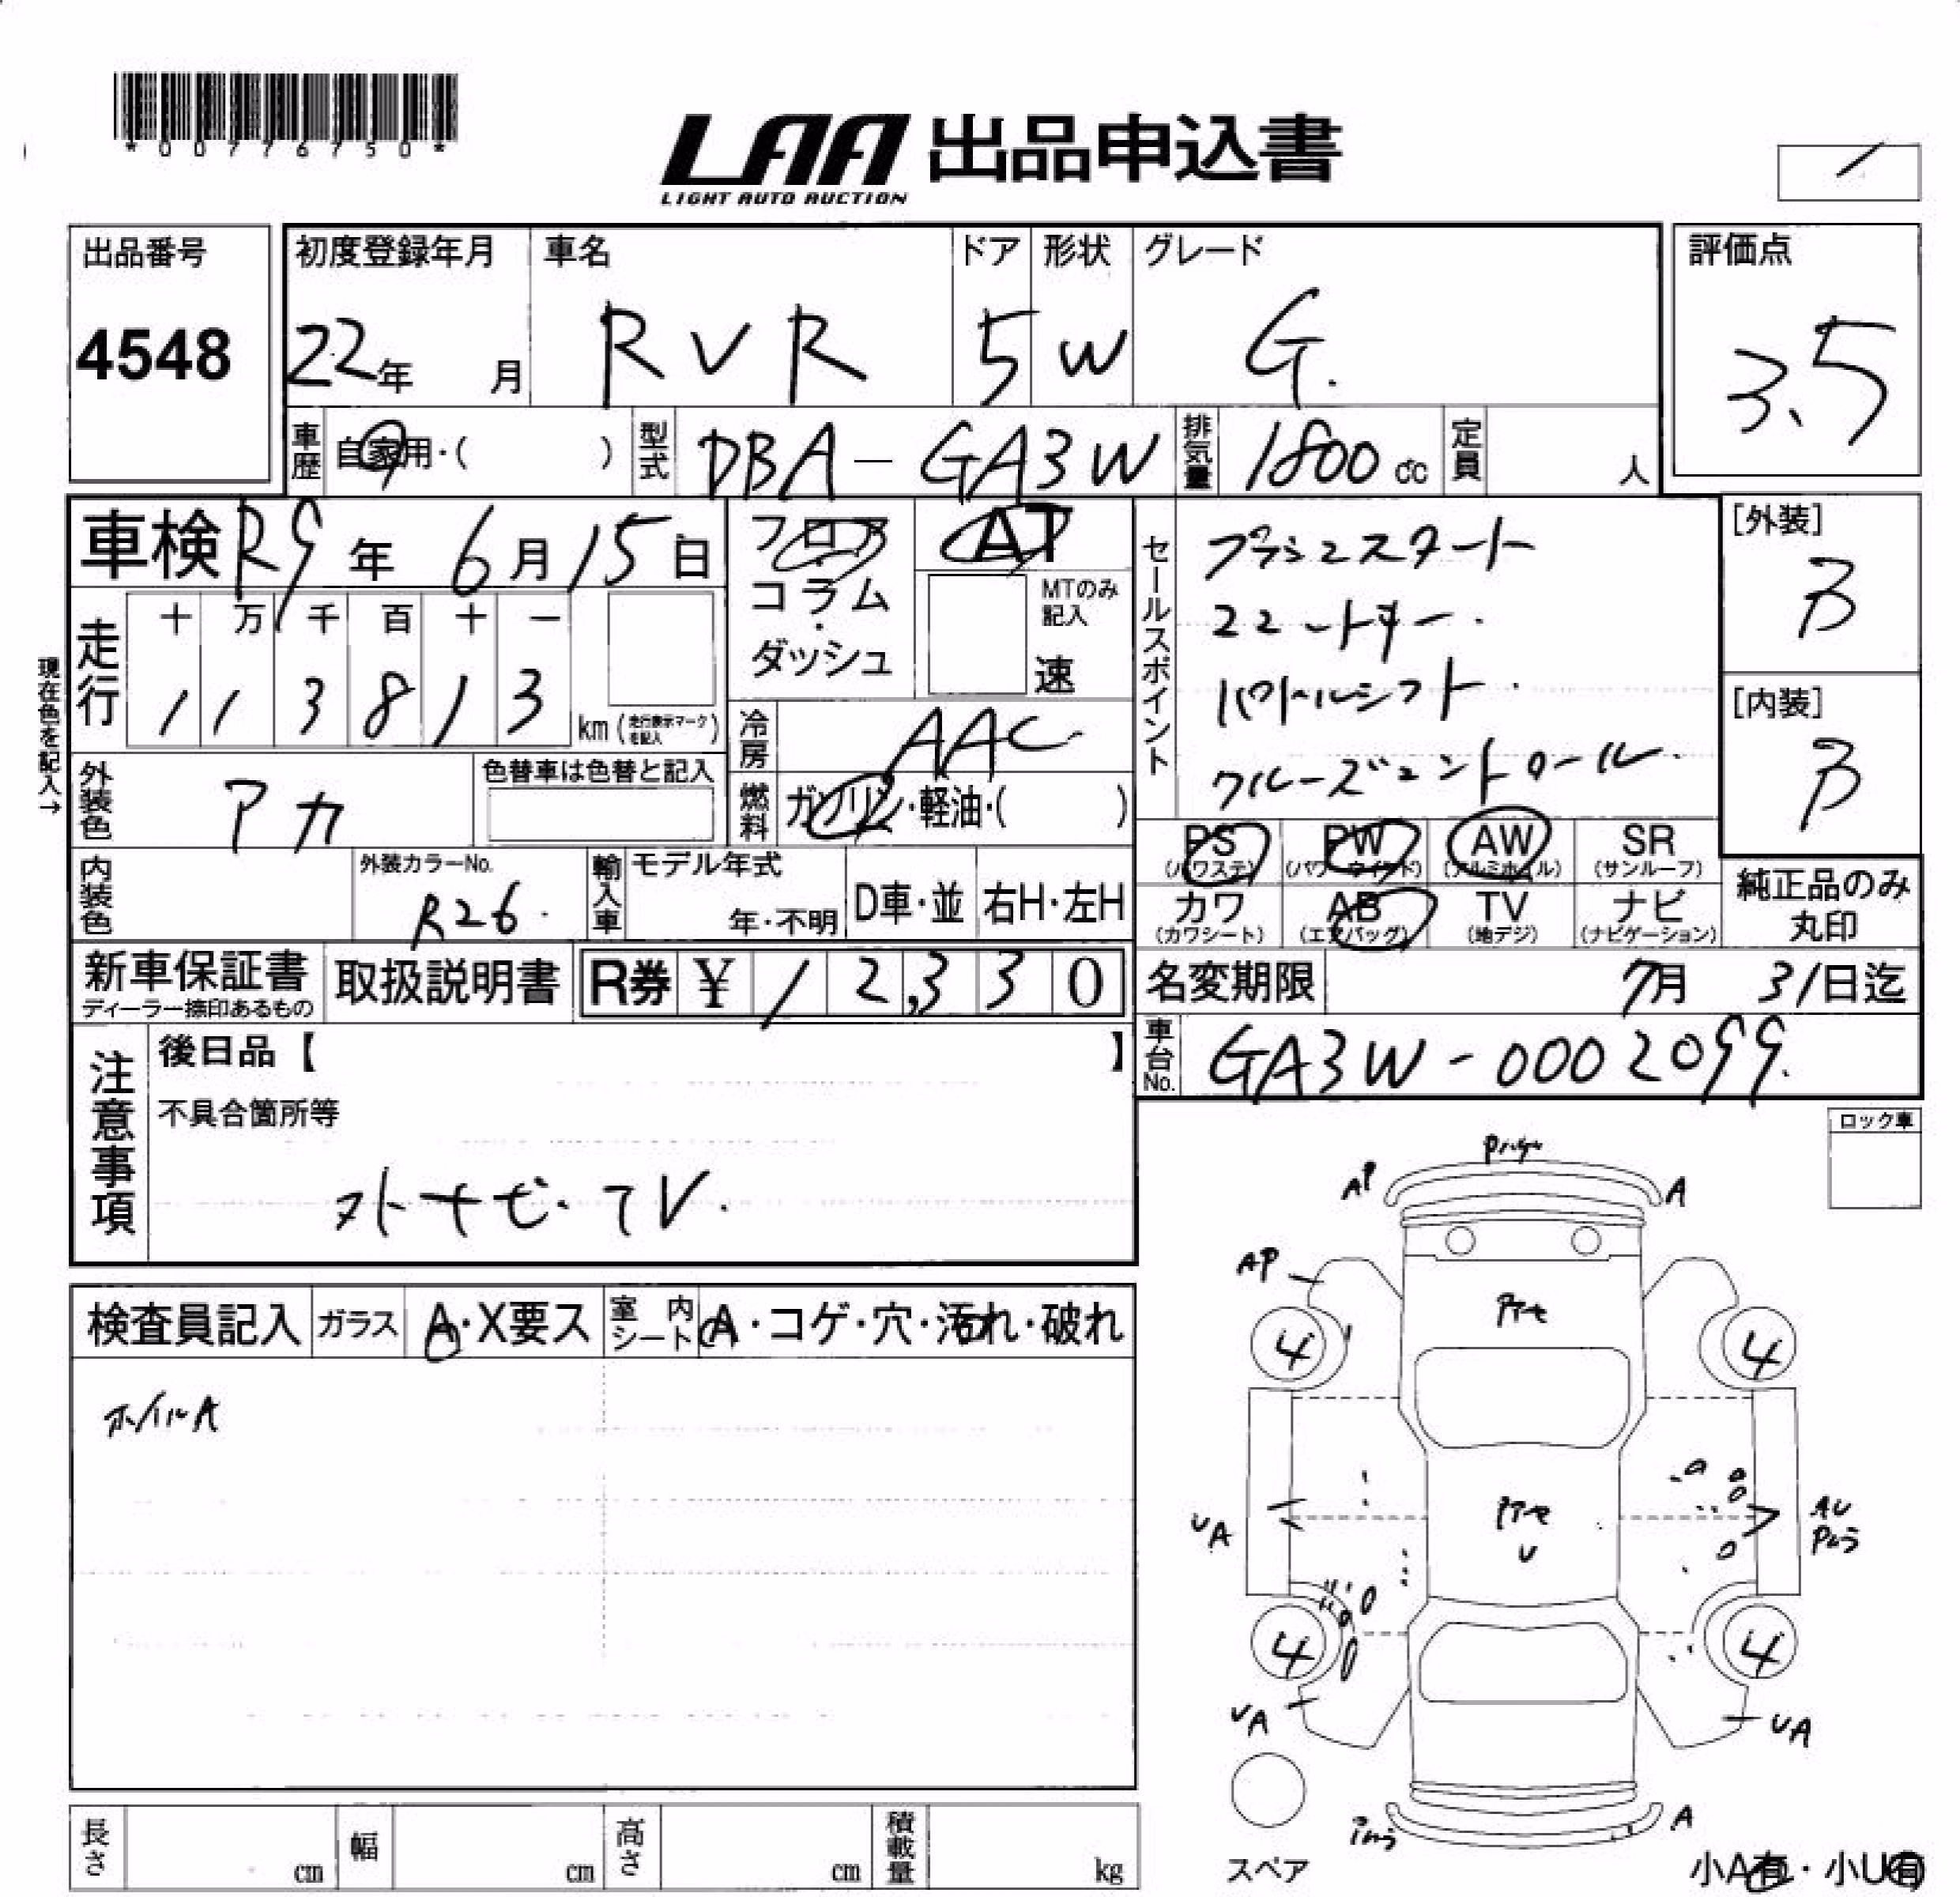 *00776750*
LAA 出品申込書
LIGHT AUTO AUCTION
出品番号
4548
初度登録年月 車名 ドア 形状 グレード
22年 月 RVR 5 W G.
評価点
3.5
車歴 自家用・( ) 型式 DBA-GA3W 排気量 1800cc 定員 人
車検 R9年 6月15日
フロア
・
コラム
・
ダッシュ
AT
MTのみ
記入
速
セールスポイント
プッシュスタート
スマートキー.
パドルシフト.
クルーズコントロール.
[外装]
B
[内装]
B
現在色を記入→
走行 十 万 千 百 十 一
1 1 3 8 1 3 km (走行表示マークを記入)
冷房 AAC
燃料 ガソリン・軽油・( )
外装色 アカ 色替車は色替と記入
内装色 外装カラーNo.
R26.
輸入車 モデル年式
年・不明 D車・並 右H・左H
PS AW SR
(パワステ) (アルミホイル) (サンルーフ)
PW
(パワーウインド)
カワ AB TV ナビ
(カワシート) (エアバッグ) (地デジ) (ナビゲーション)
純正品のみ
丸印
新車保証書
ディーラー捺印あるもの
取扱説明書
R券 ¥ 12,330
名変期限 7月 31日迄
車台No. GA3W-0002099.
注意事項
後日品【 】
不具合箇所等
ストナビ・TV.
ロック車
検査員記入 ガラス A・X要ス 室内シート A・コゲ・穴・汚れ・破れ
ホイルA
AP A
AP
4 4
UA
AU
U
4 4
UA UA
A
スペア
小A有・小U有
長さ cm 幅 cm 高さ cm 積載量 kg